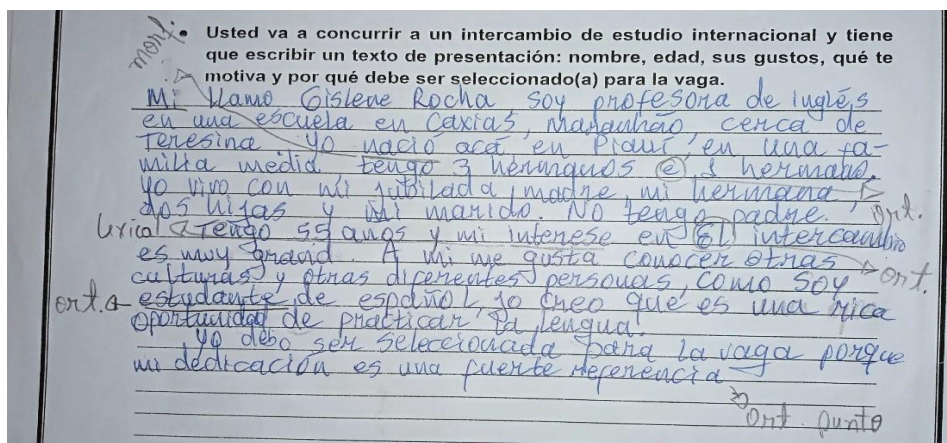 • Usted va a concurrir a un intercambio de estudio internacional y tiene
que escribir un texto de presentación: nombre, edad, sus gustos, qué te
motiva y por qué debe ser seleccionado(a) para la vaga.
Mi llamo Gislene Rocha, soy profesora de inglés
en una escuela en Caxias, Maranhão, cerca de
Teresina yo nacio acá en Piauí, en una fa-
milia media. tengo 3 hermanos e 1 hermano.
yo vivo con mi jubilada madre, mi hermana,
dos hijas y mi marido. No tengo padre. ort.
lexical Tengo 55 anos y mi interese en el intercambio
es muy grand. A mi me gusta conocer otras
culturas y otras diferentes personas, como soy ort.
ort. estudante de español, yo creo que es una rica
oportunidad de practicar la lengua.
yo debo ser seleccionada para la vaga porque
mi dedicación es una fuerte referencia
ort. punto